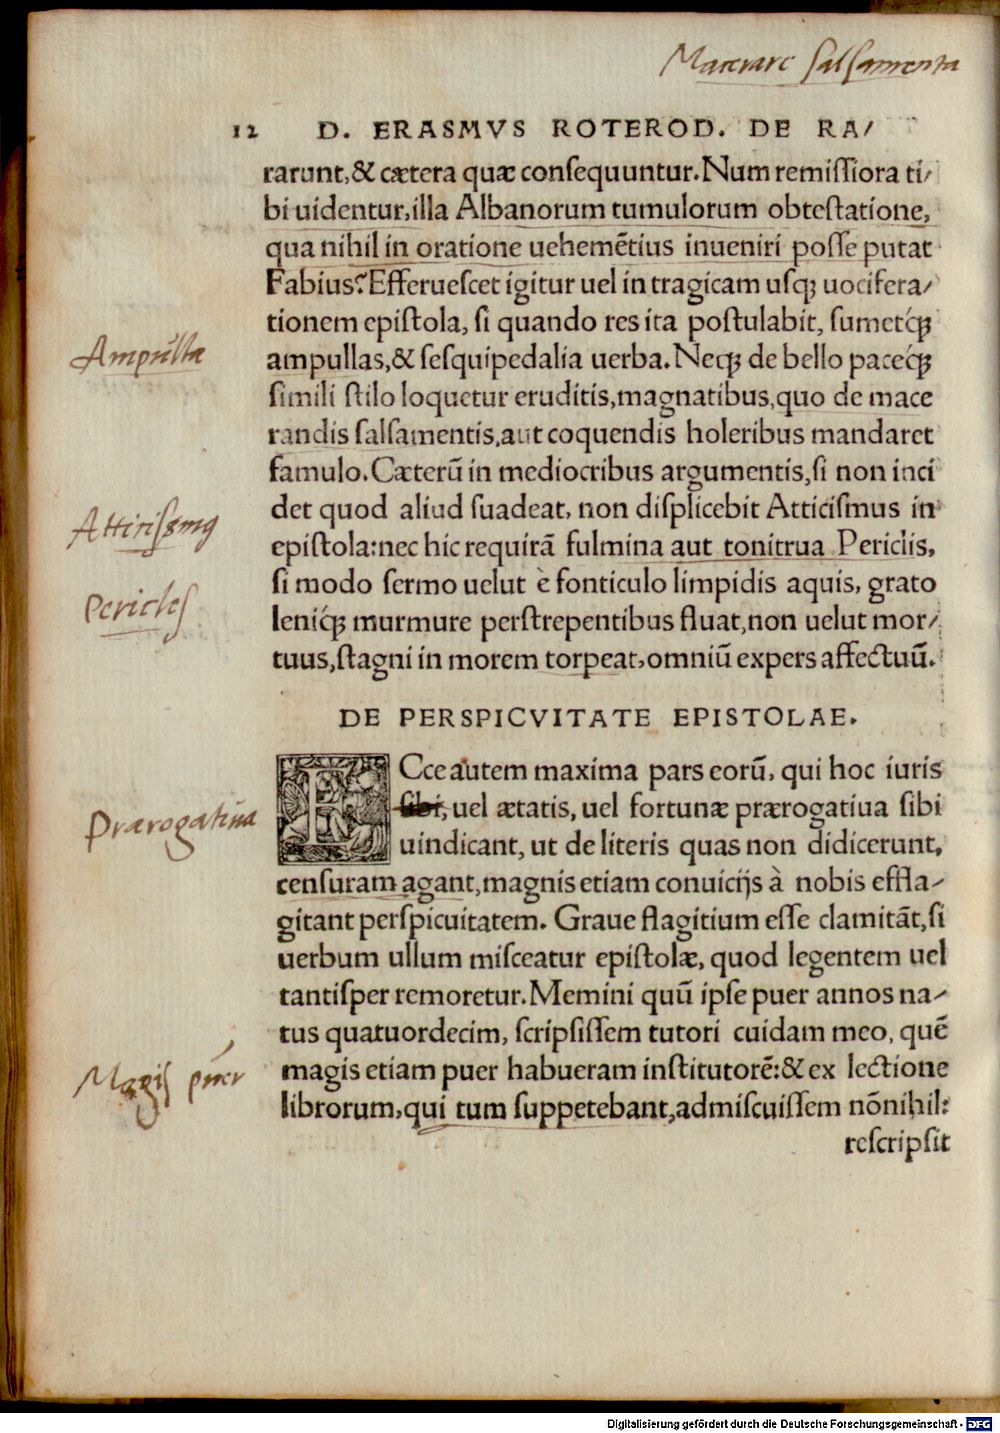 Macerare salsamenta
12 D. ERASMVS ROTEROD. DE RA/
rarunt, & cætera quæ consequuntur. Num remissiora ti/
bi uidentur, illa Albanorum tumulorum obtestatione,
qua nihil in oratione uehemẽtius inueniri posse putat
Fabius? Efferuescet igitur uel in tragicam usq; uocifera/
tionem epistola, si quando res ita postulabit, sumetq́;
ampullas, & sesquipedalia uerba. Neq; de bello paceq́;
simili stilo loquetur eruditis, magnatibus, quo de mace
randis salsamentis, aut coquendis holeribus mandaret
famulo. Cæterũ in mediocribus argumentis, si non inci
det quod aliud suadeat, non displicebit Atticismus in
epistola: nec hic requirã fulmina aut tonitrua Periclis,
si modo sermo uelut è fonticulo limpidis aquis, grato
leniq́; murmure perstrepentibus fluat, non uelut mor/
tuus, stagni in morem torpeat, omniũ expers affectuũ.
Ampulla
Atticissmus
Pericles
DE PERSPICVITATE EPISTOLAE.
ECce autem maxima pars eorũ, qui hoc iuris
sibi, uel ætatis, uel fortunæ prærogatiua sibi
uindicant, ut de literis quas non didicerunt,
censuram agant, magnis etiam conuicijs à nobis effla/
gitant perspicuitatem. Graue flagitium esse clamitãt, si
uerbum ullum misceatur epistolæ, quod legentem uel
tantisper remoretur. Memini quũ ipse puer annos na/
tus quatuordecim, scripsissem tutori cuidam meo, quẽ
magis etiam puer habueram institutorẽ: & ex lectione
librorum, qui tum suppetebant, admiscuissem nõnihil:
rescripsit
Prærogatiua
Magis puer
Digitalisierung gefördert durch die Deutsche Forschungsgemeinschaft - DFG